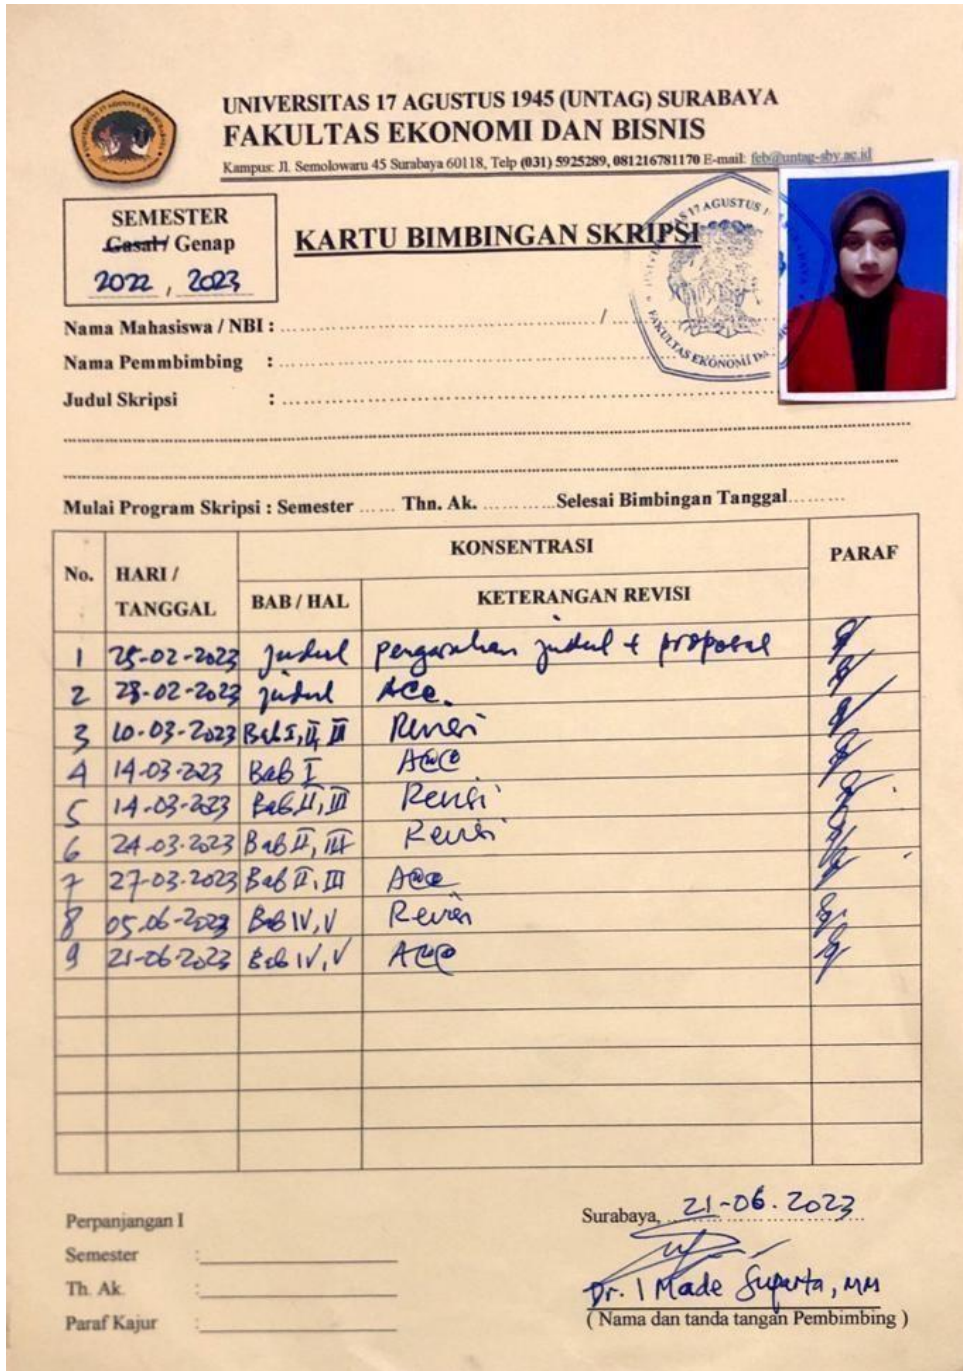 UNIVERSITAS 17 AGUSTUS 1945 (UNTAG) SURABAYA
FAKULTAS EKONOMI DAN BISNIS
Kampus: Jl. Semolowaru 45 Surabaya 60118, Telp (031) 5925289, 081216781170 E-mail: feb@untag-sby.ac.id
SEMESTER
Gasal / Genap
2022, 2023
KARTU BIMBINGAN SKRIPSI
17 AGUSTUS
FAKULTAS EKONOMI DA
Nama Mahasiswa / NBI : /
Nama Pemmbimbing :
Judul Skripsi :
Mulai Program Skripsi : Semester ...... Thn. Ak. ............Selesai Bimbingan Tanggal.........
No. HARI / TANGGAL KONSENTRASI PARAF
BAB / HAL KETERANGAN REVISI
1 25-02-2023 judul pengarahan judul + proposal
2 28-02-2023 judul Acc.
3 10-03-2023 Bab I, II, III Revisi
4 14-03-2023 Bab I ACC
5 14-03-2023 Bab II, III Revisi
6 24-03-2023 Bab II, III Revisi
7 27-03-2023 Bab II, III Acc
8 05-06-2023 Bab IV, V Revisi
9 21-06-2023 Bab IV, V ACC
Perpanjangan I
Semester :
Th. Ak. :
Paraf Kajur :
Surabaya, 21-06-2023
Dr. I Made Suparta, MM
( Nama dan tanda tangan Pembimbing )